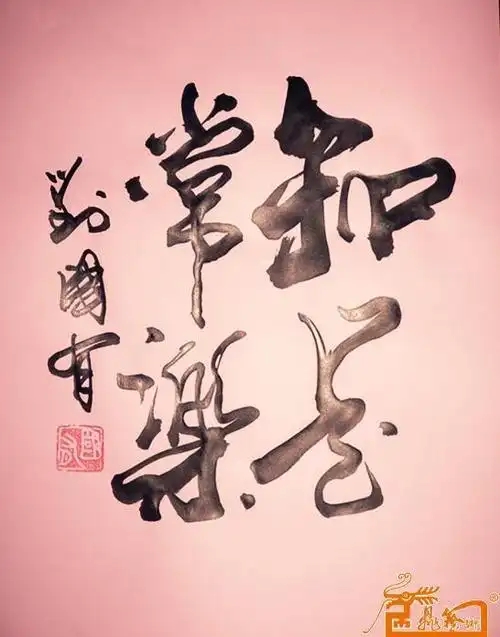 知足
常樂
劉國有